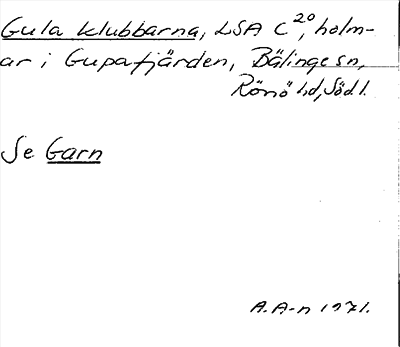 Gula klubbarna, LSA C 20, holm-
ar i Gupafjärden, Bälinge sn,
Rönö hd, Södl.
Se Garn
A. A-n 1971.